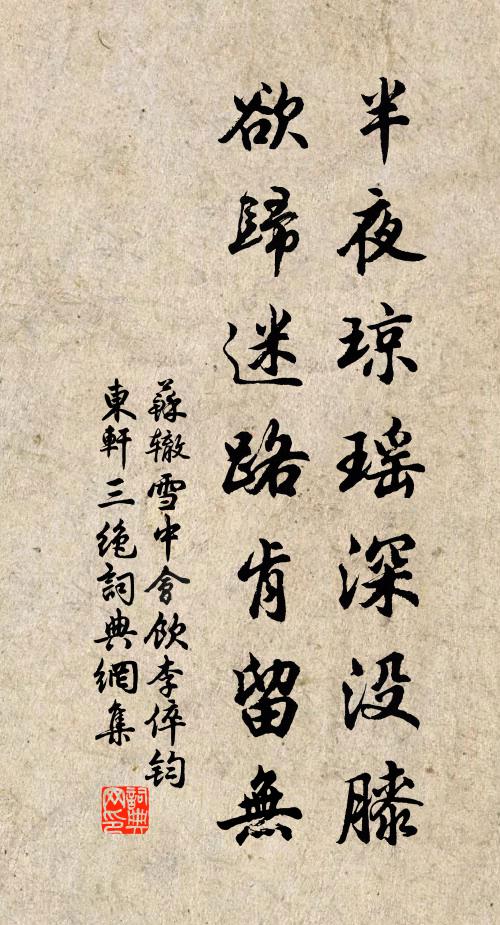 半夜琼瑶深没膝
欲歸迷路肯留無
蘇辙雪中會飲李倅钧
東軒三絶詞典網集
詞典
网印